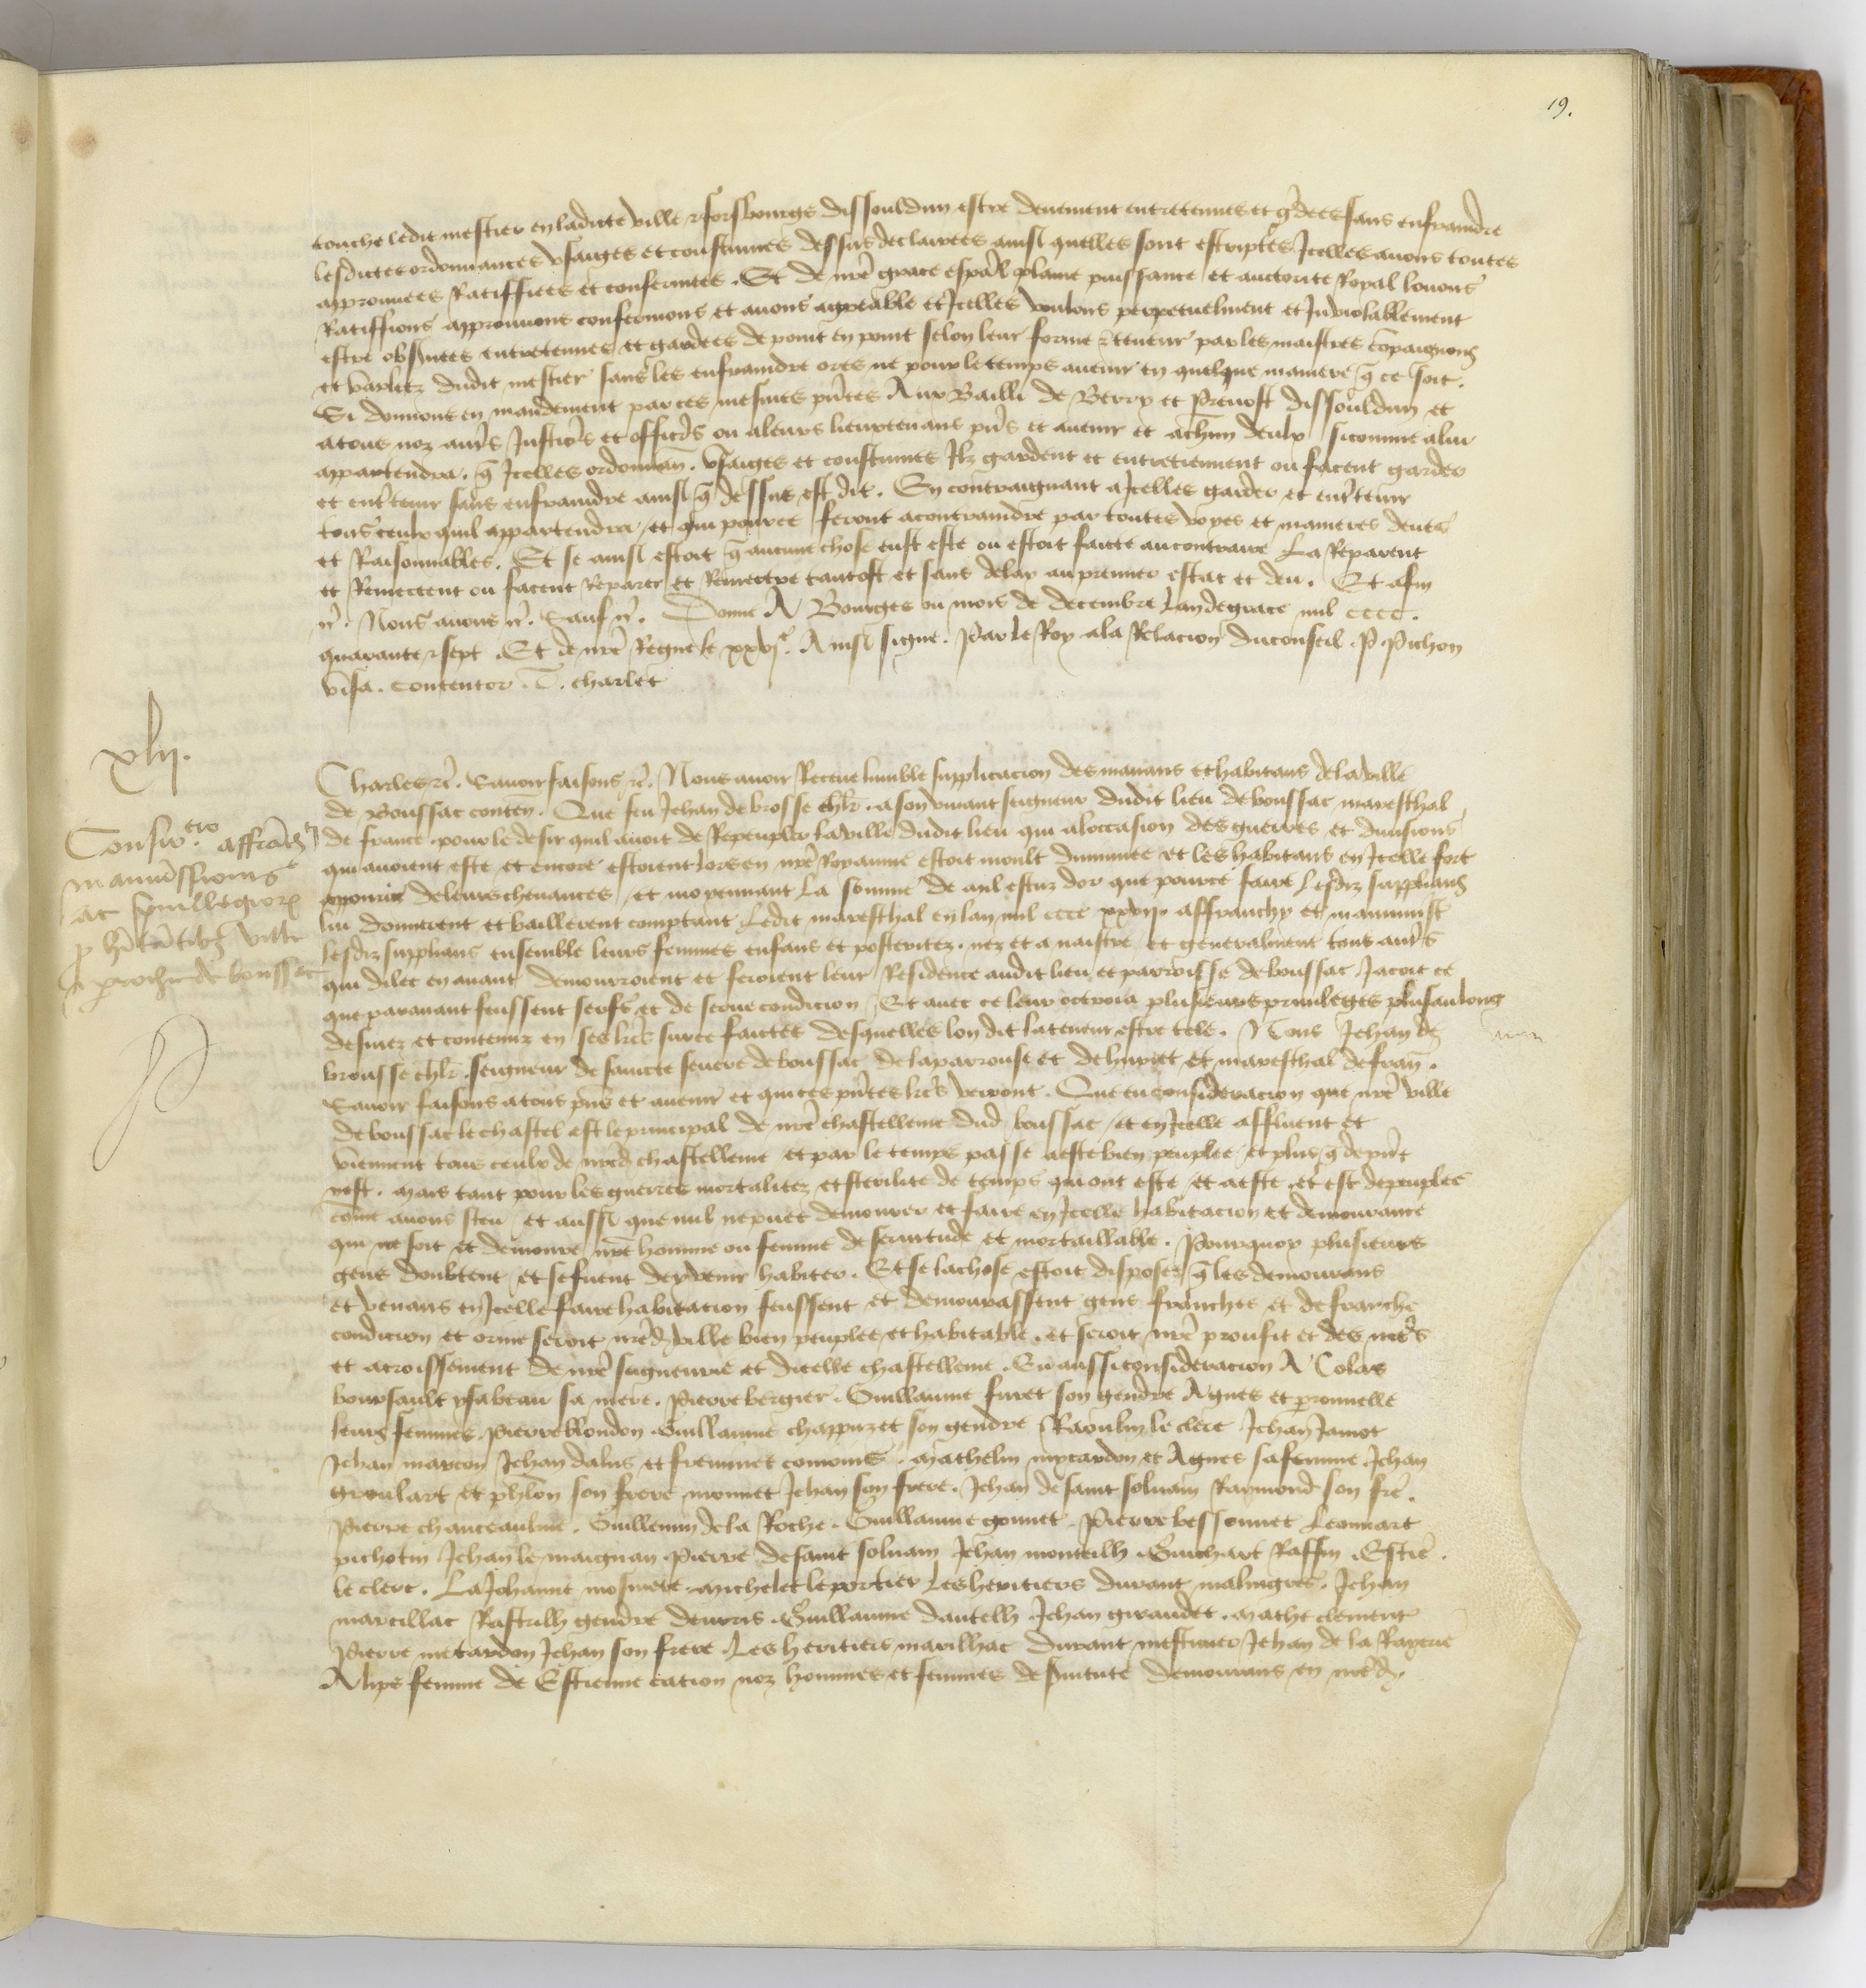 19.
touche ledit mestier en ladicte ville & forsbourgs dissouldun estre deuement entretenues et gdees sans enfraindre
lesdictes ordonnances usaiges et coustumes dessus declairees ainsi quelles sont escriptes Icelles auons toutes
approuuees Ratiffiees et confermees. Et de nre grace espal plaine puissance et auctorite Royal louons
Ratiffions approuuons confermons et auons aggreable et Icelles voulons perpetuelment et Inviolablement
estre obseruees entretenues et gardees de point en point selon leur forme & teneur par les maistres compaignons
et varletz dudit mestier sans les enfraindre ores ne pour le temps auenir en quelque maniere q ce soit.
Si donnons en mandement par ces mesmes pntes Aux Bailli de Berry et Preuost dissouldun et
a tous noz autrs Justiciers et officiers ou a leurs lieuxtenans pns et auenir et a chun deulx si comme a lui
appartendra. q Icelles ordonnan. usaiges et coustumes Ilz gardent et entretiennent ou facent garder
et entretenir sans enfraindre ainsi q dessus est dit. En contraignant a Icelles garder et entretenir
tous ceulx quil appartendra et qui pource seront a contraindre par toutes voyes et manieres deues
et Raisonnables. Et se ainsi estoit q aucune chose eust este ou estoit faicte au contraire La Reparent
et Remectent ou facent Reparer et Remectre tantost et sans delay au premier estat et deu. Et afin
&c. Nous auons &c. Sauf &c. Donne A Bourges ou mois de decembre Lan de grace mil cccc.
quarante & sept. Et de nre Regne le xxvj.e Ainsi signe. Par le Roy a la Relacion du conseil. P. Pichon
visa. contentor. charlet
xlij.
Charles &c. Sauoir faisons &c. Nous auoir Receue humble supplicacion des manans et habitans de la ville
de Boussac conten. Que feu Jehan de brosse chlr. a son viuant seigneur dudit lieu de boussac mareschal
de france pour le desir quil auoit de Repeupler la ville dudit lieu qui a loccasion des guerres et diuisions
qui auoient este et encore estoient lors en nre Royaume estoit moult diminuee et les habitans en Icelle fort
apouriz de leurs cheuances et moyennant La somme de mil escuz dor que pource faire Lesdiz supplians
lui donnerent et baillerent comptant Ledit mareschal en lan mil cccc xxvij affranchy et manumist
lesdiz supplians ensemble leurs femmes enfans et posteritez nez et a naistre et generalment tous autrs
qui dilec en auant demourroient et feroient leur Residence audit lieu et parroisse de boussac Jacoit ce
que parauant feussent serfs et de serue condicion Et auec ce leur octroia plusieurs priuileges plus au long
desirez et contenuz en ses lres sur ce faictes desquelles lon dit la teneur estre tele. Nous Jehan de
brousse chlr. seigneur de saincte seuere de boussac de la parrouse et de huriet et mareschal de fran.
Sauoir faisons a tous pns et auenir et qui ces pntes lres verront. Que en consideracion que nre ville
de boussac le chastel est le principal de nre chastellenie dud boussac et en Icelle affluent et
viennent tous ceulx de nred chastellenie et par le temps passe a este bien peuplee et plus q de pnt
nest. mais tant pour les guerres mortalitez et sterilite de temps qui ont este et a este et est depeuplee
come auons sceu et aussi que nul ne puet demourer et faire en Icelle habitacion et demourance
qui ne soit et demoure nre homme ou femme de seruitude et mortaillable. Pourquoy plusieurs
gens doubtent et se fuent de y venir habiter. Et se la chose estoit disposee q les demourans
et venans en Icelle faire habitacion feussent et demourassent gens franches et de franche
condicion et orine seroit nred ville bien peuplee et habitable. et seroit nre prouffit et des nres
et acroissement de nre seigneurie et dicelle chastellenie. En aussi consideracion A Colas
boursault ysabeau sa mere. Pierre bergier. Guillaume furet son gendre Agnes et peronnelle
leurs femmes. Pierre blondon Guillaume chappuzet son gendre Raoulin le clerc Jehan Jamot
Jehan marcon Jehan dalus et freminet comoins. Mathelin mycardon et Agnes sa femme Jehan
groulart et phlon son frere monnet Jehan son frere. Jehan de saint soluain Raymond son fre.
Pierre chanceaulme. Guillemin de la Roche. Guillaume gonnet. Pierre bessonnet Leonnart
pichotin Jehan le maignan Pierre de saint soluain Jehan monteilh Guichart Raffin Estie.
le clerc. La Johanne mosniere Michelet le portier Les heritiers durant malingres. Jehan
marcillac Rastrilh gendre deuris. Guillaume dautelh Jehan giraudet. Mathe clement
Pierre mecardon Jehan son frere Les heritiers marilhac durant mestiuer Jehan de la Rayerie
Alips femme de Estienne cation noz hommes et femmes de seruitute demourans en nred.